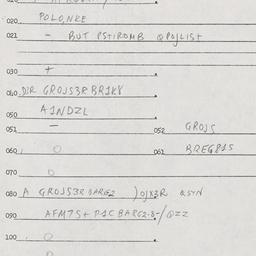 020 POLO,NKE
021 - BUT PSTIROMB QPOJLIST
030 +
040 DIR GROJS3R BR1K8
050 A1NDZL
051 - 052 GROJS
060 O 061 BREG81S
070 O
080 A GROJS3R BARGZ )OJX3R QSYN
090 AFM75+ P1CBARCZ-8-/QZZ
100 O